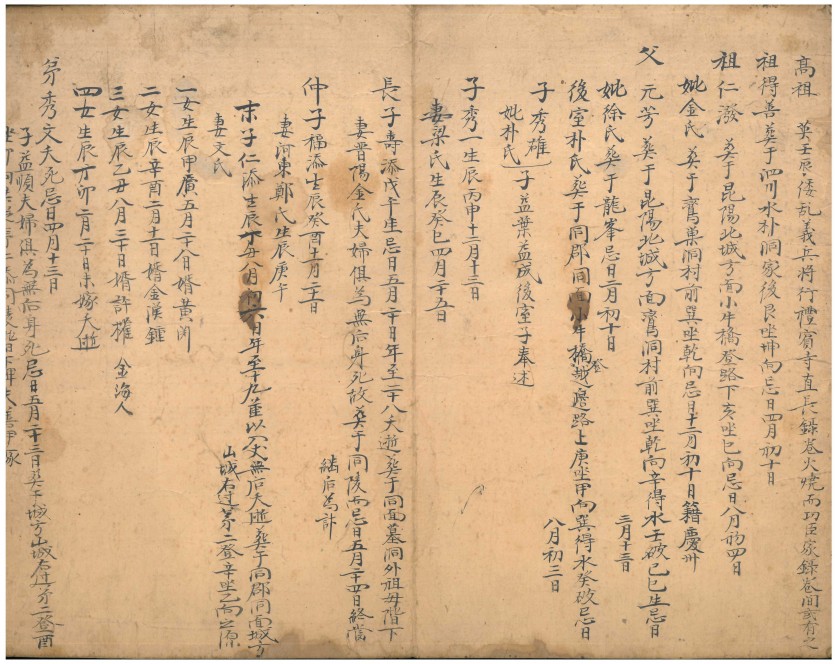 高祖 莫壬辰倭乱義兵将行禮賓寺直長錄卷火燒而功臣家錄卷間亥有之
祖得善葬于泗川水朴洞家後艮坐坤向忌日四月初十日
祖仁潑 葬于昆陽北城方面小牛橋登路下亥坐巳向忌日八月初四日
妣金氏 葬于鸞巢洞村前巽坐乾向忌日十二月初十日籍慶州
父 元芳 葬于昆陽北城方面鸞洞村前巽坐乾向辛得水壬破己巳生忌日三月十三日
妣徐氏 葬于龍峯忌日二月初十日
後室朴氏葬于同郡同面小牛橋越邊路上登庚坐甲向巽得水癸破忌日八月初三日
子秀雄 妣朴氏 子益葉益成後室子奉述
子秀一生辰丙申十二月十三日
妻梁氏生辰癸巳四月二十五日
長子壽添戊午生忌日五月二十日年至二十八夭逝葬于同面墓洞外祖母階下
妻晋陽金氏夫婦俱為無后身死故葬于同陵而忌日五月二十四日終當繼后為計
仲子福添生辰癸酉十一月二十一日
妻河東鄭氏生辰庚午
末子仁添生辰丁丑八月初六日年至十九 以 无后夭逝葬于同郡同面城方山城右过第二登辛坐乙向之原
妻文氏
一女生辰甲 五月二十八日婿黄
二女生辰辛酉二月十一日婿金漢鍾
三女生辰乙丑八月二十日婿許權 金海人
四女生辰丁卯二月二十日未嫁夭逝
弟秀文夫死忌日四月十三日
子益順夫婦俱為無后身死忌日五月二十三日葬于城方山城右过第二登酉